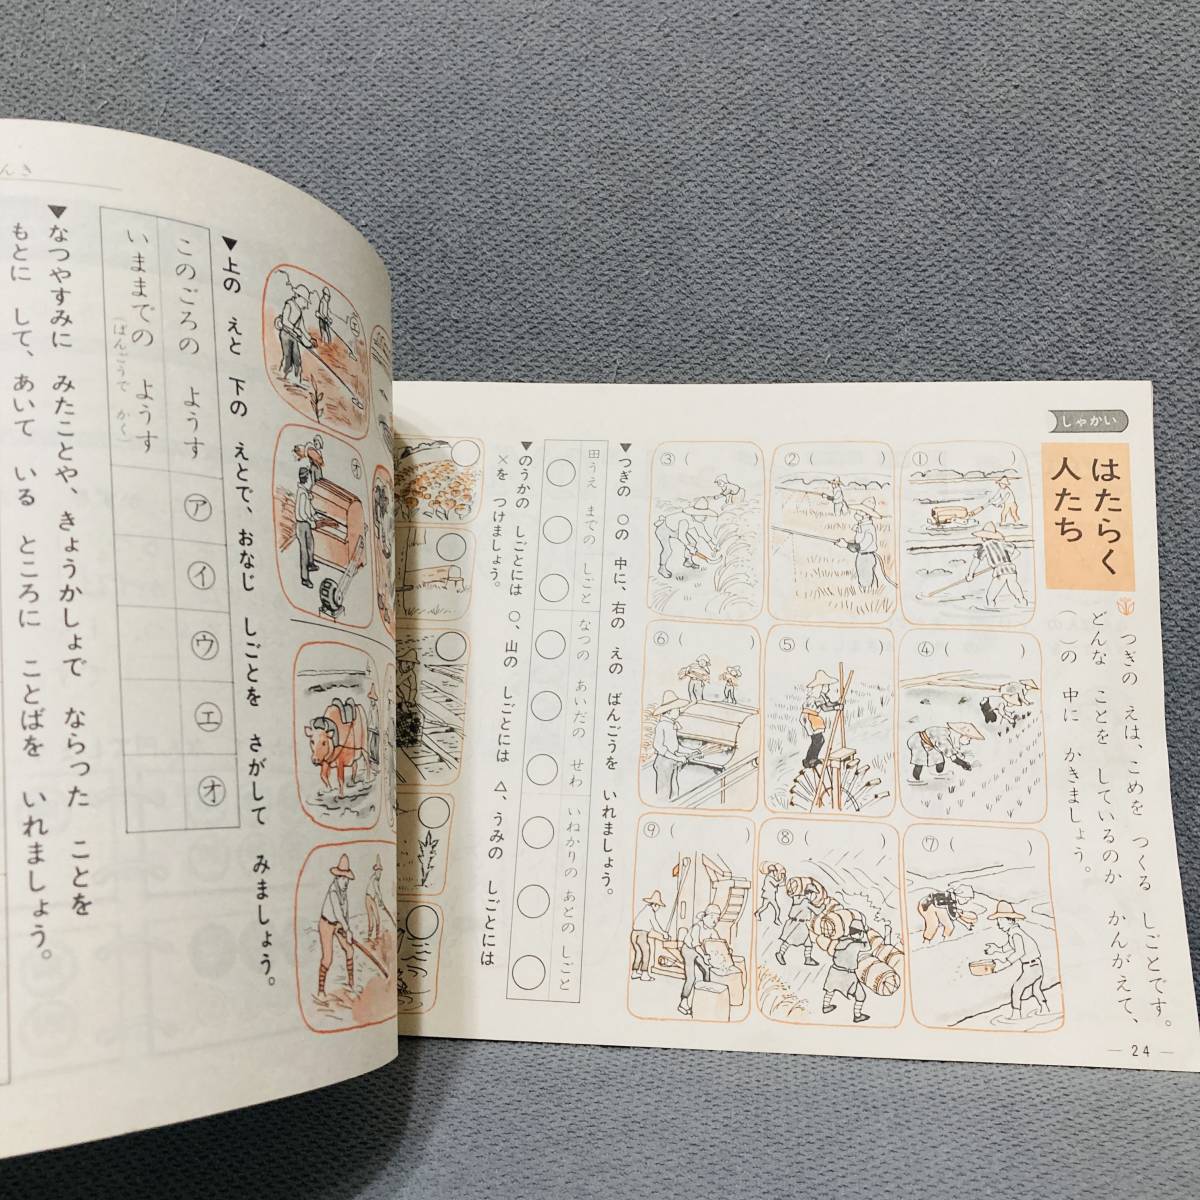 しゃかい
はたらく
人たち
つぎの えは、こめを つくる しごとです。
どんな ことを しているのか かんがえて、
( )の 中に かきましょう。
①( )
②( )
③( )
④( )
⑤( )
⑥( )
⑦( )
⑧( )
⑨( )
▼つぎの ○の 中に、右の えの ばんごうを いれましょう。
田うえ までの しごと
なつの あいだの せわ
いねかりの あとの しごと
▼のうかの しごとには ○、山の しごとには △、うみの しごとには
×を つけましょう。
— 24 —
エ
オ
▼上の えと 下の えとで、おなじ しごとを さがして みましょう。
このごろの ようす
㋐
㋑
㋒
㋓
㋔
いままでの ようす
(ばんごうで かく)
▼なつやすみに みたことや、きょうかしょで ならった ことを
もとに して、あいて いる ところに ことばを いれましょう。